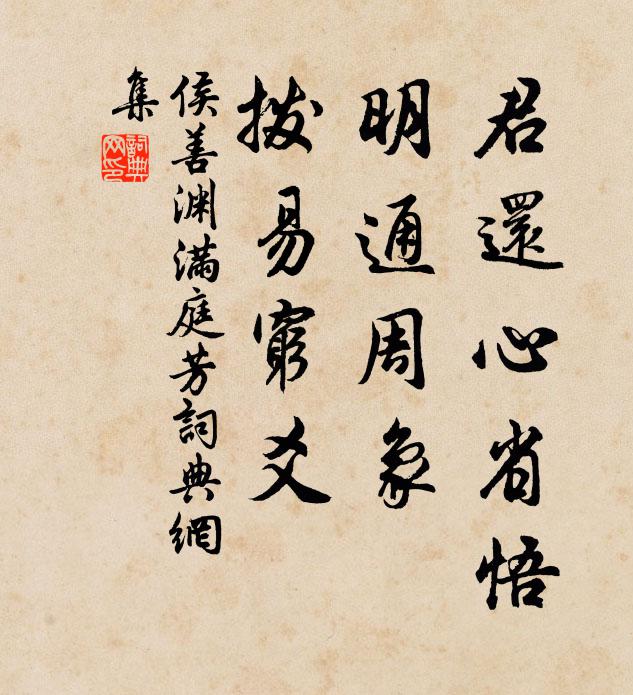 君還心省悟
明通周象
拨易窮爻
侯善渊滿庭芳詞典網
集
詞典
网印